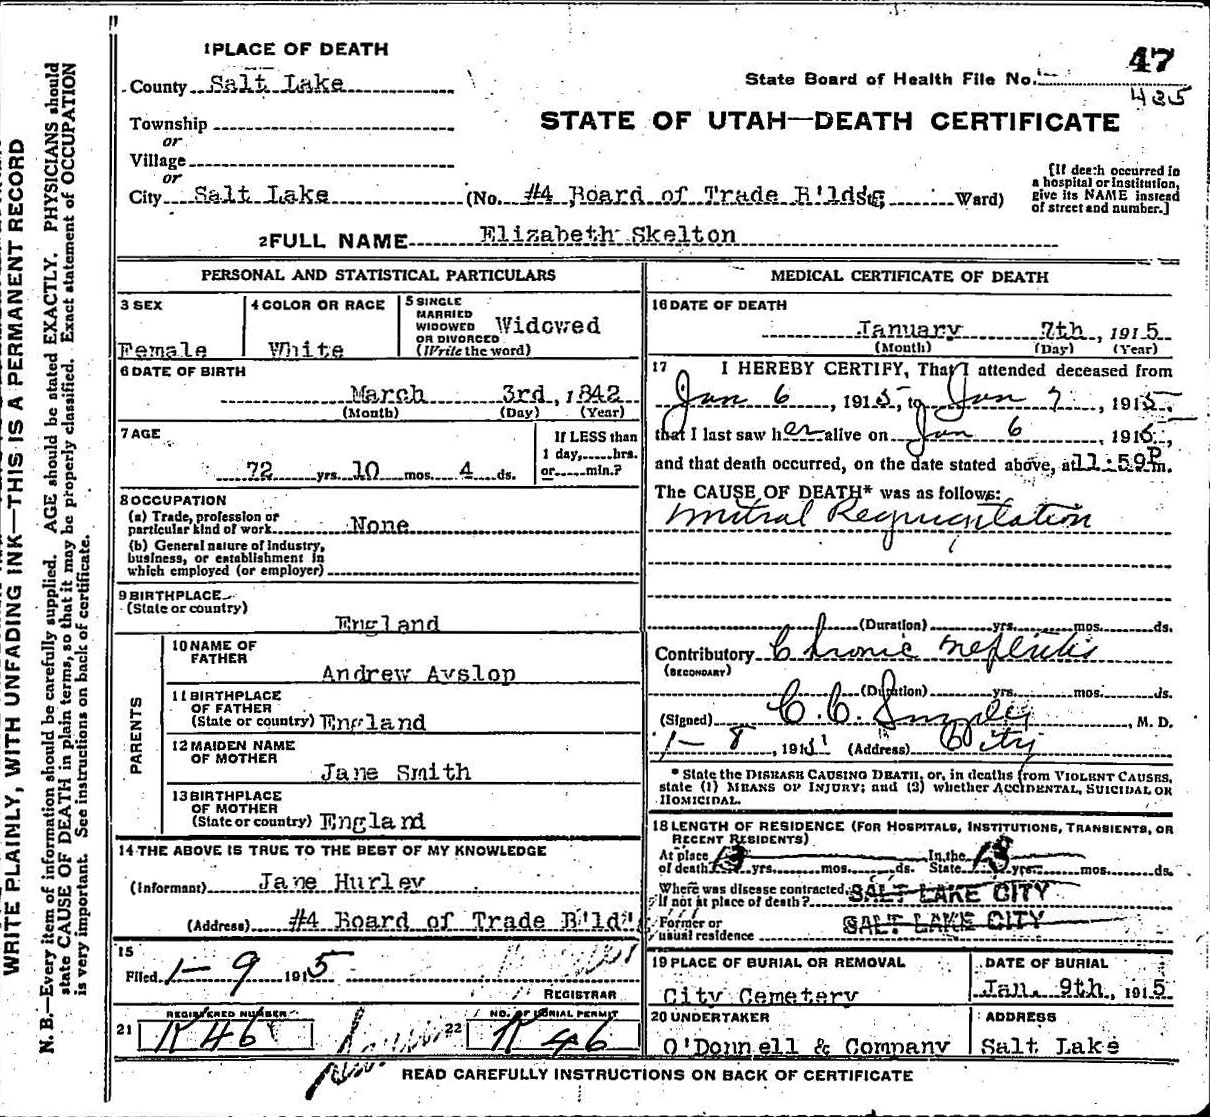 WRITE PLAINLY, WITH UNFADING INK—THIS IS A PERMANENT RECORD
N. B.—Every item of information should be carefully supplied. AGE should be stated EXACTLY. PHYSICIANS should
state CAUSE OF DEATH in plain terms, so that it may be properly classified. Exact statement of OCCUPATION
is very important. See instructions on back of certificate.
1 PLACE OF DEATH
County Salt Lake
Township
or
Village
or
City Salt Lake (No. #4 Board of Trade B'ldg; Ward)
State Board of Health File No. 47
435
STATE OF UTAH—DEATH CERTIFICATE
[If death occurred in
a hospital or institution,
give its NAME instead
of street and number.]
2 FULL NAME Elizabeth Skelton
PERSONAL AND STATISTICAL PARTICULARS
3 SEX
Female
4 COLOR OR RACE
White
5 SINGLE
MARRIED
WIDOWED
OR DIVORCED
(Write the word)
Widowed
6 DATE OF BIRTH
March 3rd, 1842
(Month) (Day) (Year)
7 AGE
72 yrs. 10 mos. 4 ds.
If LESS than
1 day, hrs.
or min.?
8 OCCUPATION
(a) Trade, profession or
particular kind of work None
(b) General nature of industry,
business, or establishment in
which employed (or employer)
9 BIRTHPLACE
(State or country)
England
PARENTS
10 NAME OF
FATHER
Andrew Ayslop
11 BIRTHPLACE
OF FATHER
(State or country) England
12 MAIDEN NAME
OF MOTHER
Jane Smith
13 BIRTHPLACE
OF MOTHER
(State or country) England
14 THE ABOVE IS TRUE TO THE BEST OF MY KNOWLEDGE
(Informant) Jane Hurley
(Address) #4 Board of Trade B'ld"
15
Filed 1-9 1915
REGISTRAR
21 REGISTERED NUMBER
K 46
22 NO. OF BURIAL PERMIT
K 46
MEDICAL CERTIFICATE OF DEATH
16 DATE OF DEATH
January 7th, 1915
(Month) (Day) (Year)
17 I HEREBY CERTIFY, That I attended deceased from
Jan 6, 1915, to Jan 7, 1915,
that I last saw her alive on Jan 6, 1915,
and that death occurred, on the date stated above, at 11:59 P m.
The CAUSE OF DEATH* was as follows:
Mitral Regurgitation
(Duration) yrs. mos. ds.
Contributory Chronic Nephritis
(SECONDARY)
(Duration) yrs. mos. ds.
(Signed) C. C. , M. D.
1-8, 191 (Address) City
* State the DISEASE CAUSING DEATH, or, in deaths from VIOLENT CAUSES,
state (1) MEANS OF INJURY; and (2) whether ACCIDENTAL, SUICIDAL OR
HOMICIDAL.
18 LENGTH OF RESIDENCE (FOR HOSPITALS, INSTITUTIONS, TRANSIENTS, OR
RECENT RESIDENTS)
At place In the
of death yrs. mos. ds. State yrs. mos. ds.
Where was disease contracted, SALT LAKE CITY
if not at place of death?
Former or SALT LAKE CITY
usual residence
19 PLACE OF BURIAL OR REMOVAL
City Cemetery
DATE OF BURIAL
Jan. 9th, 1915
20 UNDERTAKER
O'Donnell & Company
ADDRESS
Salt Lake
READ CAREFULLY INSTRUCTIONS ON BACK OF CERTIFICATE